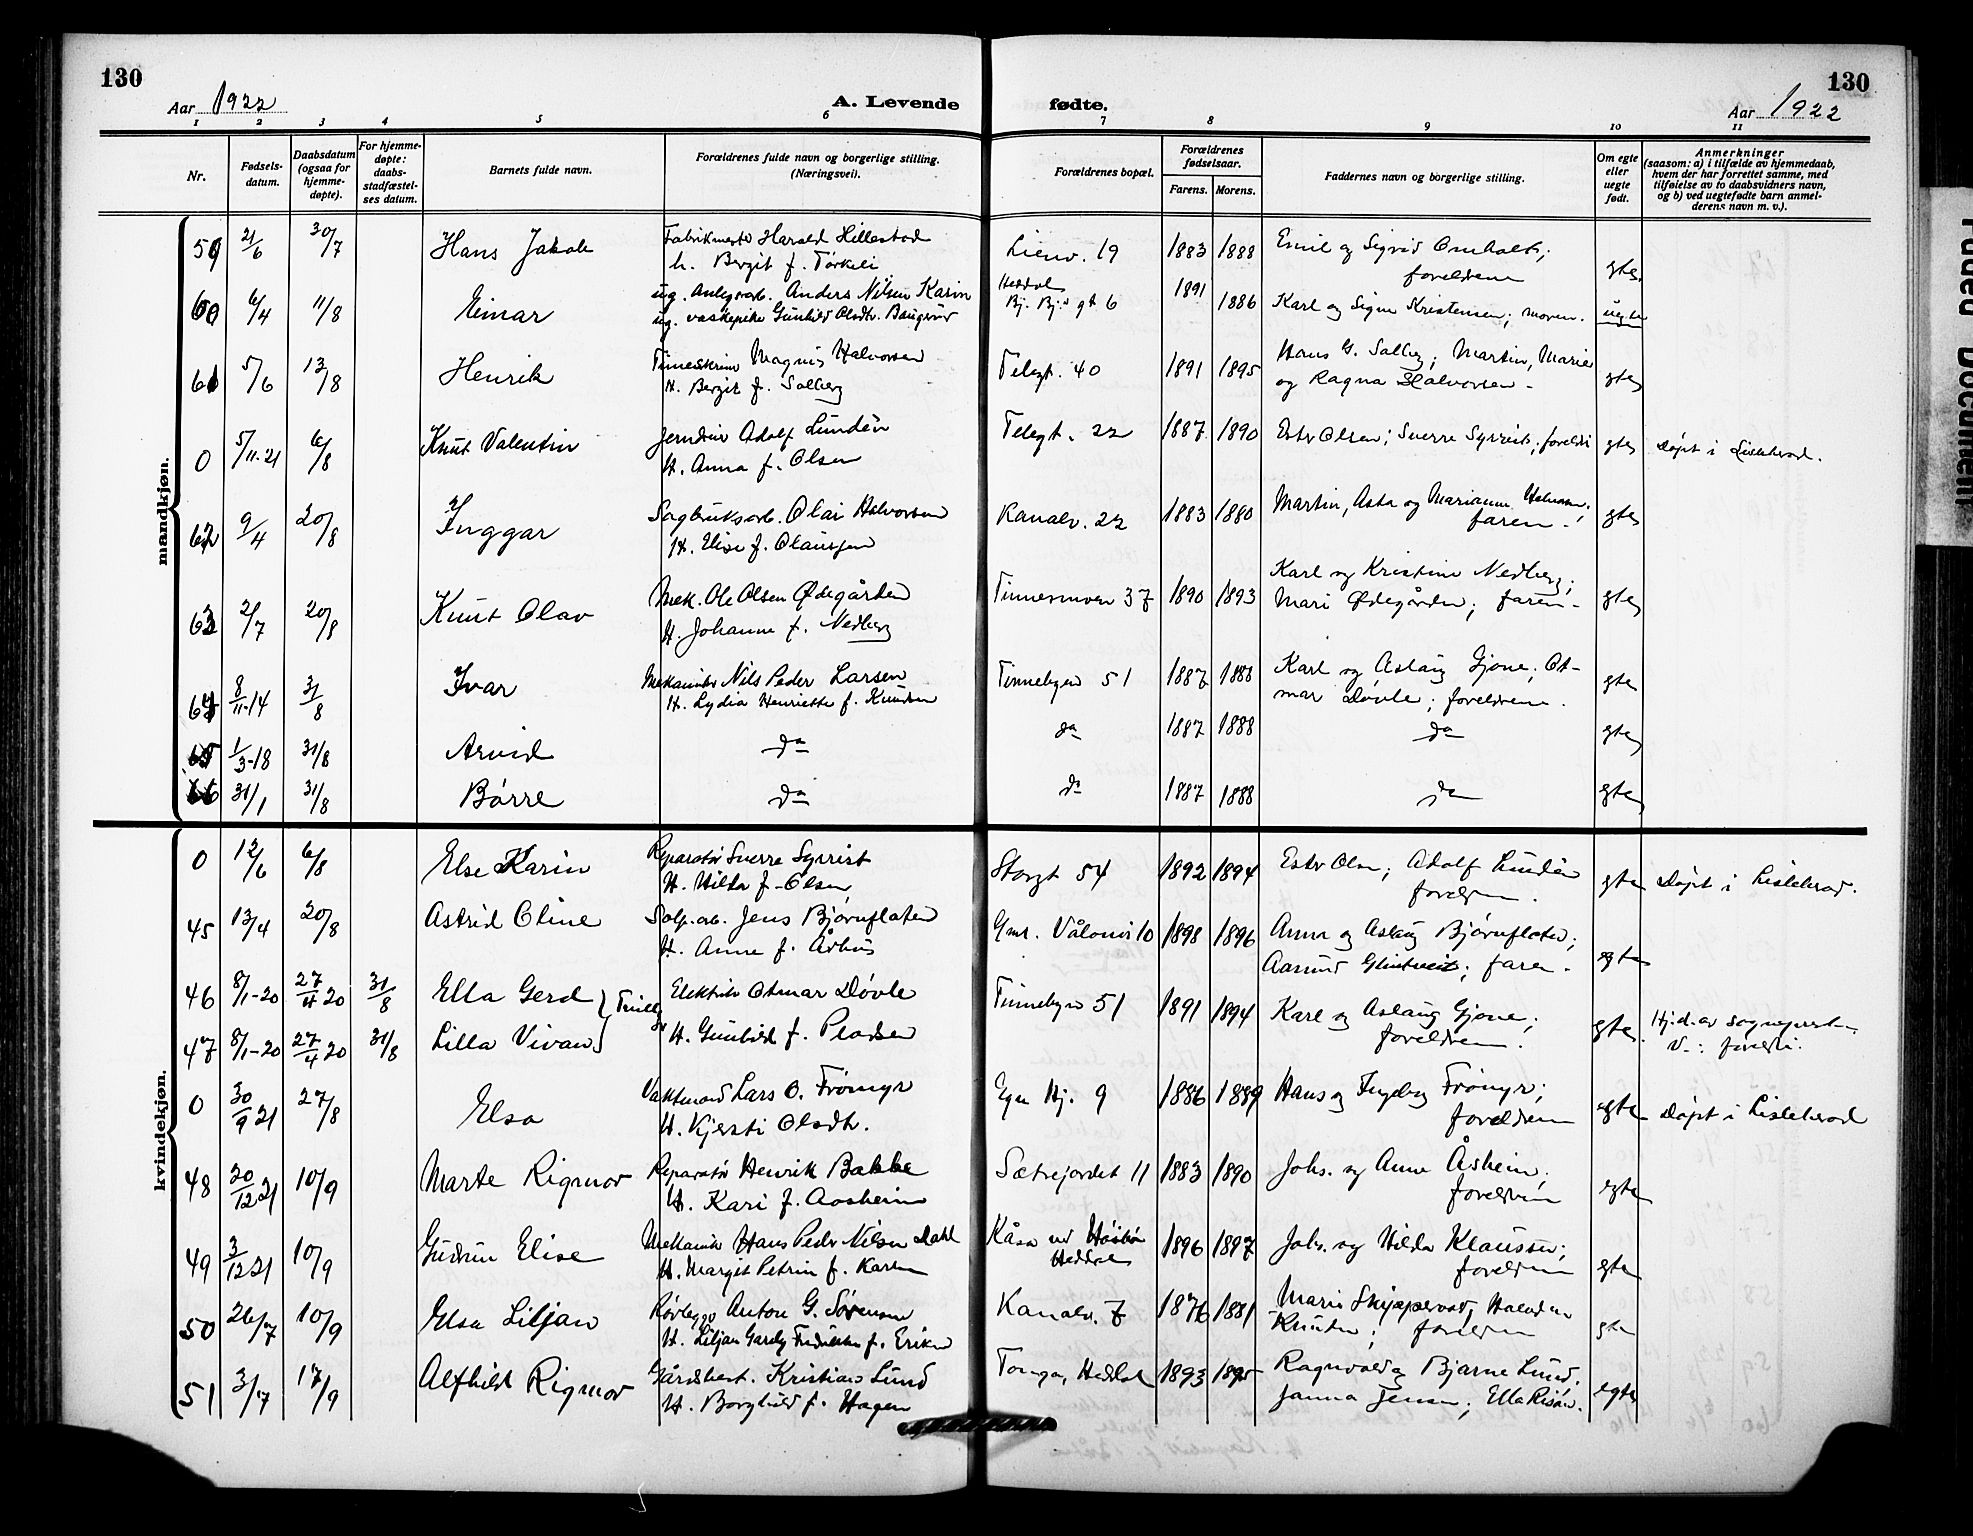 130
Aar 1922
A. Levende
fødte.
130
Aar 1922
1 2 3 4 5 6 7 8 9 10 11
Nr.
Fødsels-
datum.
Daabsdatum
(ogsaa for
hjemme-
døpte).
For hjemme-
døpte:
daabs-
stadfæstel-
ses datum.
Barnets fulde navn.
Forældrenes fulde navn og borgerlige stilling.
(Næringsvei).
Forældrenes bopæl.
Forældrenes
fødselsaar.
Farens. Morens.
Faddernes navn og borgerlige stilling.
Om egte
eller
uegte
født.
Anmerkninger
(saasom: a) i tilfælde av hjemmedaab,
hvem der har forrettet samme, med
tilføielse av to daabsvidners navn,
og b) ved uegtefødte barn anmel-
derens navn m. v.).
mandkjøn.
59 21/6 30/7 Hans Jakob Fabrikmester Harald Hillestad Lienv. 19 1883 1888 Emil og Sigrid Omholt;
h. Bergit f. Torkeli foreldrene egte
60 6/4 11/8 Einar ug. Anlegsarb. Anders Nilsen Karin Heddal 1891
ug. vaskepike Gunhild Olsdtr. Baugerud Bj. Bj.s gt 6 1886 Karl og Signe Kristensen; moren. uegte
61 5/6 13/8 Henrik Magnus Halvorsen Telegt. 40 1891 1895 Hans G. Solberg; Martin, Marie
H. Bergit f. Solberg og Ragna Halvorsen - egte
0 5/11-21 6/8 Knut Valentin Jerndreier Adolf Lundén Telegt. 22 1887 1890 Ester Olsen; Sverre Syrrist; foreldr. egte Døpt i Lisleherad.
H. Anna f. Olsen
62 9/4 20/8 Inggar Sagbruksarb. Olai Halvorsen Kanalv. 22 1883 1880 Martin, Asta og Marianne Halvorsen;
H. Elise f. Claussen faren - egte
63 2/7 20/8 Knut Olav Mek. Ole Olsen Ødegården Tinnemoen 37 1890 1893 Karl og Kristine Nedberg;
H. Johanne f. Nedberg Mari Ødegården; faren - egte
64 8/11-14 31/8 Ivar Mekaniker Nils Peder Larsen Tinnebyen 51 1887 1888 Karl og Aslaug Gjone; Ot-
H. Lydia Henriette f. Knudsen mar Døvle; foreldrene. egte
65 1/3-18 31/8 Arvid do do 1887 1888 do egte
66 31/1 31/8 Børre do do 1887 1888 do egte
kvindekjøn.
0 12/6 6/8 Else Karin Reparatør Sverre Syrrist Storgt 54 1892 1894 Ester Olsen; Adolf Lundén
H. Hilda f. Olsen foreldren. egte Døpt i Lisleherad.
45 13/4 20/8 Astrid Oline Salp. arb. Jens Bjørnflaten 1898 1896 Anna og Aslaug Bjørnflaten;
H. Anne f. Århus Aasmund; faren - egte
46 8/1-20 27/4 20 31/8 Ella Gerd Elektriker Otmar Døvle Tinnebyen 51 1891 1894 Karl og Aslaug Gjone;
Tvill
47 8/1-20 27/4 20 31/8 Lilla Vivan H. Gunhild f. Pladsen foreldrene. egte Hj.d. av sogneprest -
V.: foreldr.
0 30/9 21 27/8 Elsa Vaktmand Lars O. Frømyr Egne Hj. 9 1886 1889 Hans og Ingeborg Frømyr;
H. Kjersti Olsdtr. foreldrene egte Døpt i Lisleherad
48 20/12 21 10/9 Marte Rigmor Reparatør Henrik Bakke Sætrejordet 11 1883 1890 Johs. og Anne Åsheim,
H. Kari f. Aasheim foreldrene egte
49 3/12 21 10/9 Gudrun Elise Mekanik Hans Peder Nilsen Dahl Kåsa ved 1896 1897 Johs. og Hilda Klaussen;
H. Marget Petrine f. Karlsen Heddal foreldrene egte
50 26/7 10/9 Elsa Liljan Rørlegger Anton G. Sørensen Kanalv. 7 1876 1881 Marie Skjæpervad,
H. Liljan f. Eriksen Knutsen; foreldren egte
51 3/7 17/9 Alfhild Rigmor Gårdbest. Kristian Lund Heddal 1893 1895 Ragnvald og Bjarne Lund.
H. Borghild f. Hagen Janna Jensen; Ella Risøen. egte